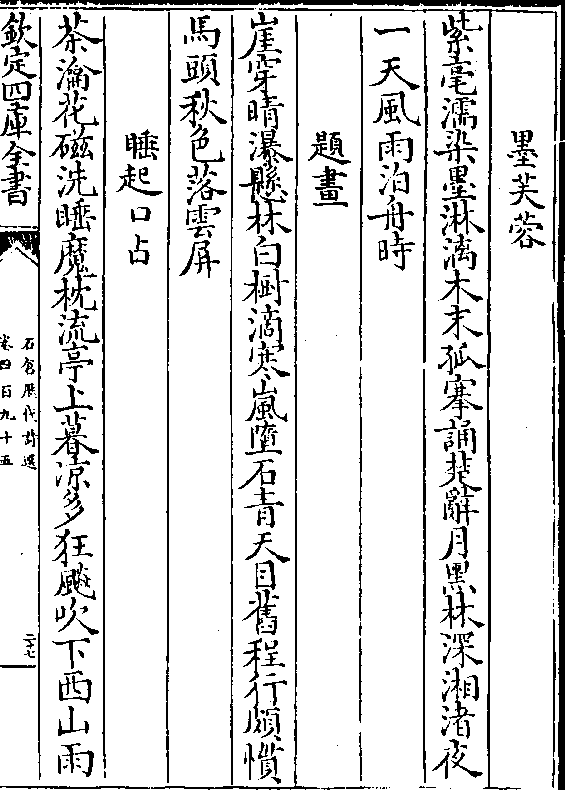 墨芙蓉
紫毫濡染墨淋漓木末孤搴誦楚辭月黑林深湘渚夜
一天風雨泊舟時
題畫
崖穿晴瀑懸林白樹滴寒嵐墮石青天目舊程行頗慣
馬頭秋色落雲屏
睡起口占
茶瀹花磁洗睡魔枕流亭上暮凉多狂飈吹下西山雨
欽定四庫全書
石倉歷代詩選
卷四百九十五
二十七